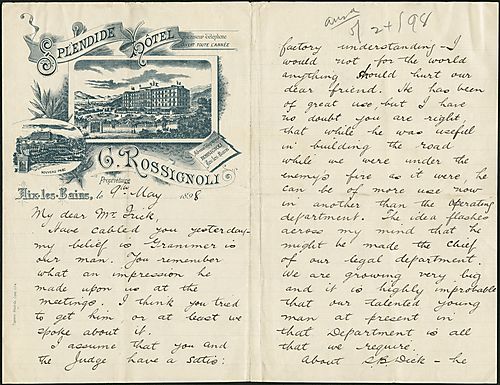 SPLENDIDE HOTEL
Ascenseur Téléphone
OUVERT TOUTE L'ANNÉE
NOUVEAU PARC
C. ROSSIGNOLI
Propriétaire
Aix-les-Bains, le 9th May 1898
My dear Mr Frick,
I have cabled you yesterday
my belief is Grammer is
our man. You remember
what an impression he
made upon us at the
meetings. I think you tried
to get him or at least we
spoke about it.
I assume that you and
the Judge have a satis:
answd
5/24/98
factory understanding - I
would not for the world
anything should hurt our
dear friend. He has been
of great use, but I have
no doubt you are right,
that while he was useful
in building the road
while we were under the
enemy's fire as it were, he
can be of more use now
in another than the operating
department. The idea flashes
across my mind that he
might be made the Chief
of our legal department.
We are growing very big
and it is highly improbable
that our talented young
man at present in
that Department is all
that we require.
About S.B. Dick - he